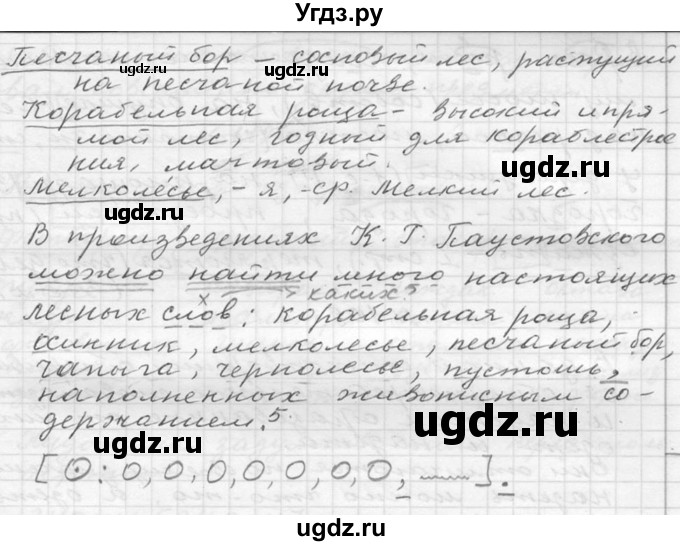 Угдз.ру
Песчаный бор – сосновый лес, растущий
на песчаной почве.
Корабельная роща – высокий и пря-
мой лес, годный для кораблестрое
ния, мачтовый.
Мелколесье, – я, – ср. Мелкий лес.
В произведениях К. Г. Паустовского
можно найти много настоящих
каких?
лесных слов: корабельная роща,
, мелколесье, песчаный бор,
чапыга, чернолесье, пустошь,
наполненных живописным со-
держанием. 5
[О: О, О, О, О, О, О, О, ].
ugdz.ru
ugdz.ru
ugdz.ru
ugdz.ru
ugdz.ru
ugdz.ru
ugdz.ru
ugdz.ru
ugdz.ru